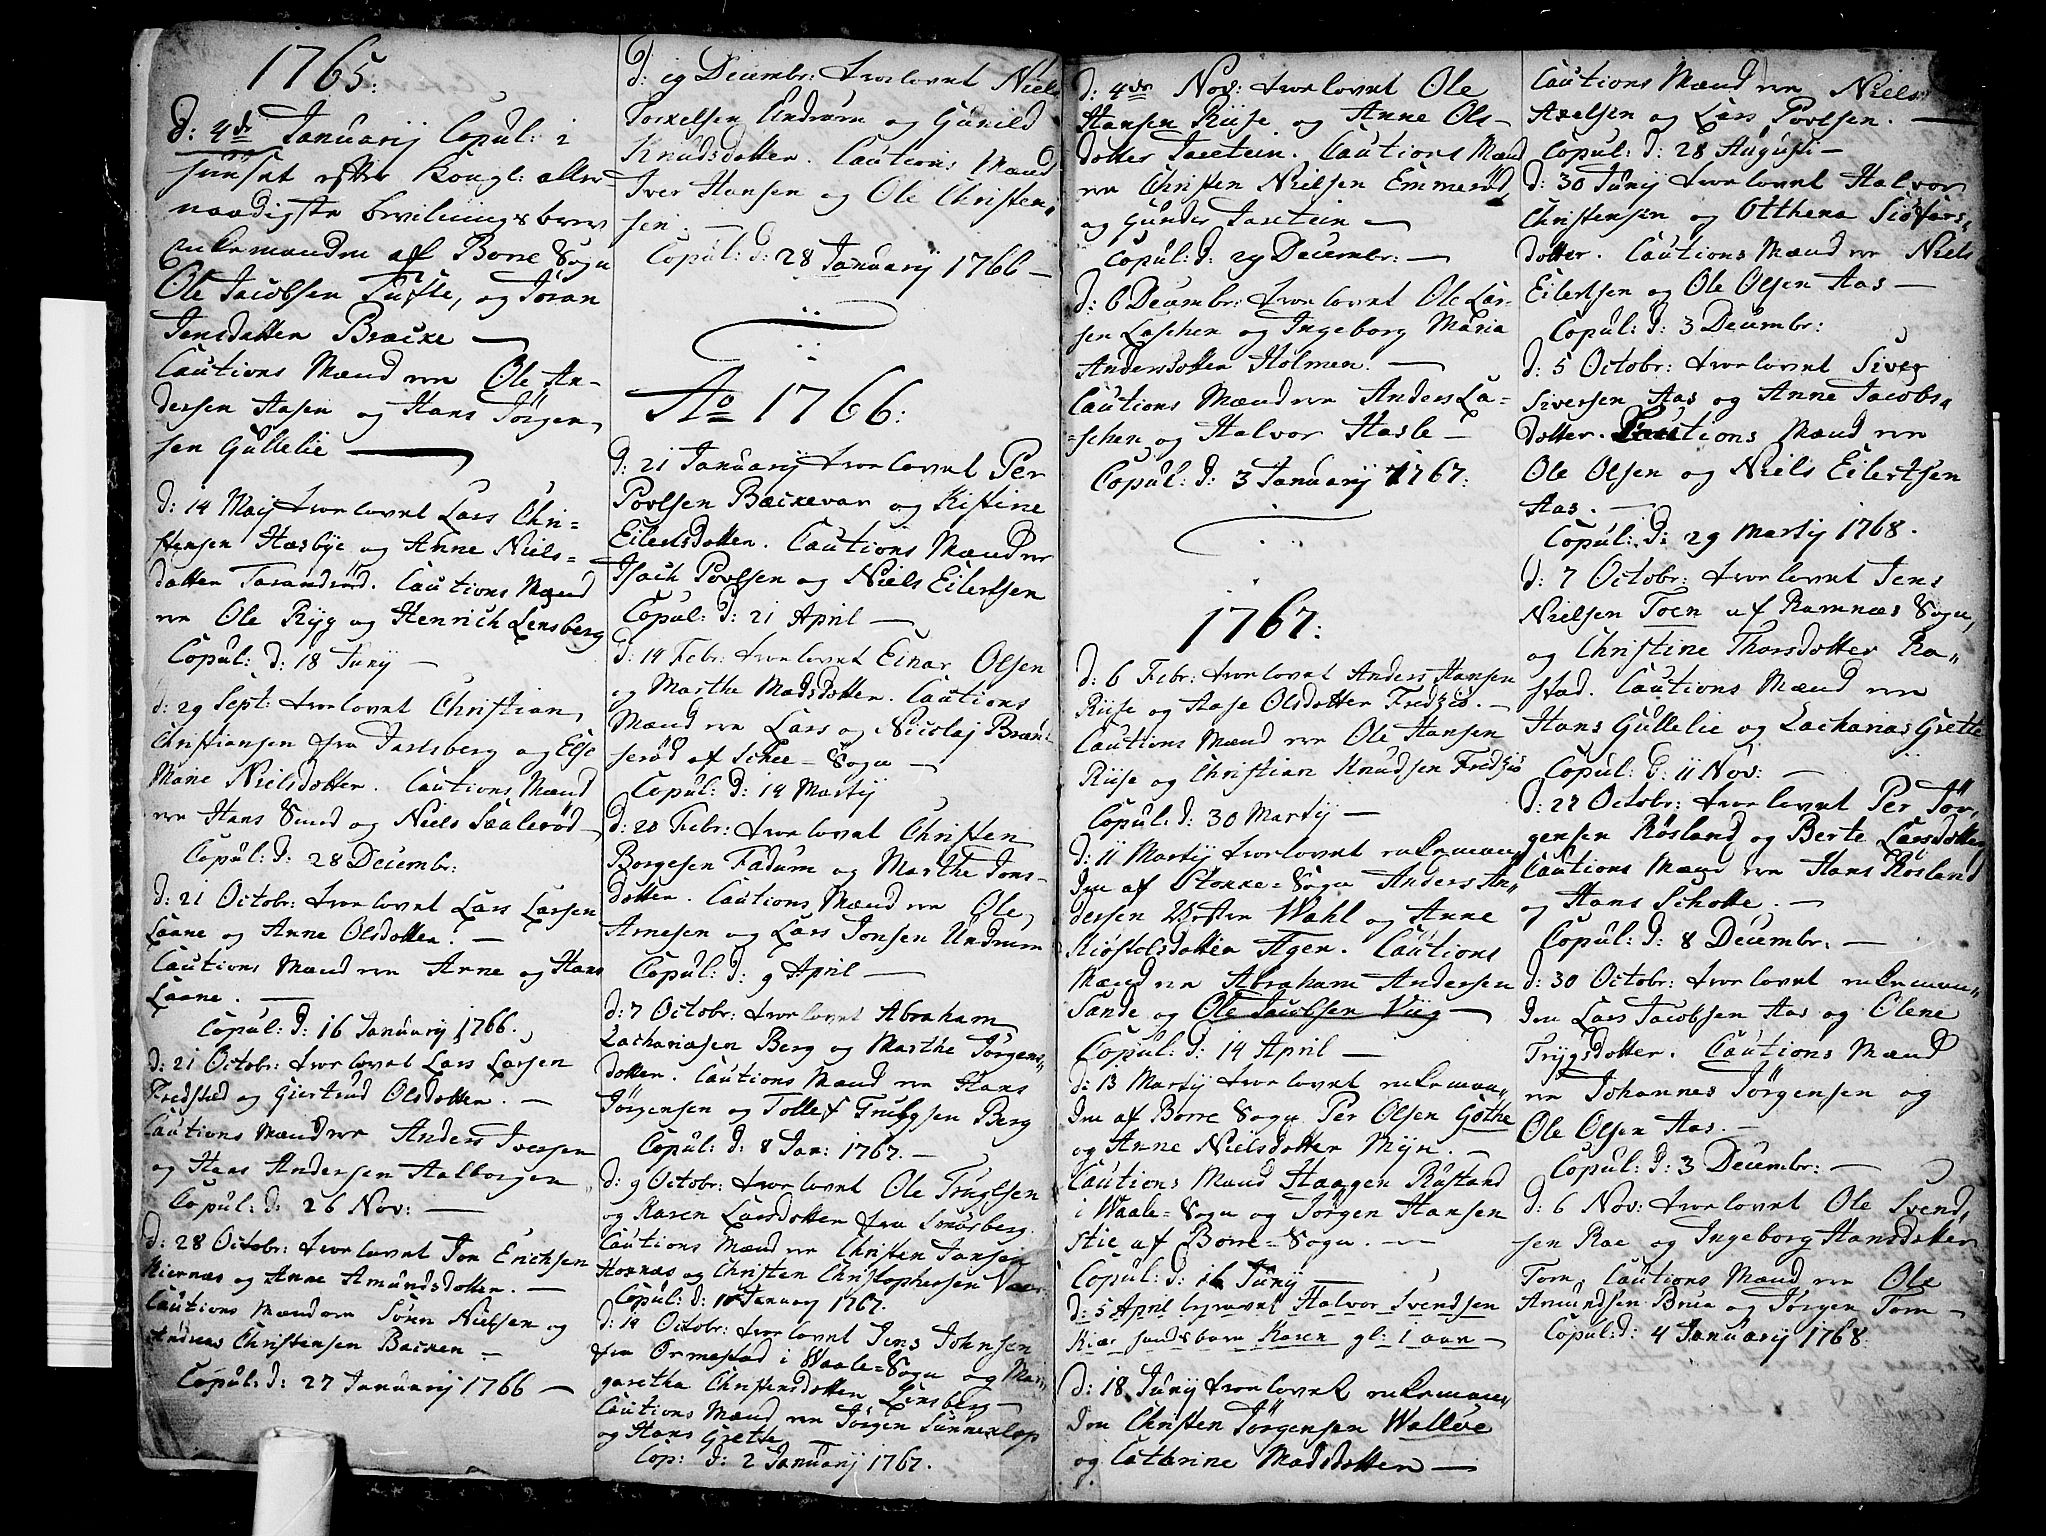 1765:
d: 4de Januarij Copul: i
huuset efter Kongl: aller-
naadigste bevilnings brev
enkemanden af Borre Sogn
Ole Jacobsen Tufte, og Joran
Jensdatter Bræcke —
Cautions Mænd ere Ole An-
dersen Aasen og Hans Jørgen-
sen Gullelie —
d: 14 Maij trorlovet Lars Chri-
stensen Hæsbye og Anne Niels-
datter Tarandrød. Cautions Mænd
ere Ole Ryg og Henrich Lensberg
Copul: d: 18 Junij —
d: 29 Sept: trorlovet Christian
Christiansen fra Jarlsberg og Else
Marie Nielsdatter. Cautions Mænd
ere Hans Smed og Niels Saalerød —
Copul: d: 28 Decembr:
d: 21 Octobr: trorlovet Lars Larsen
Laane og Anne Olsdatter. —
Cautions Mænd ere Arne og Hans
Laane. —
Copul: d: 16 Januarij 1766.
d: 21 Octobr: trorlovet Lars Larsen
Fredsted og Giertrud Olsdatter. —
Cautions Mænd ere Anders Iversen
og Hans Andersen Aalborgen
Copul: d: 26 Nov: —
d: 28 Octobr: trorlovet Jon Erichsen
Kiernæs og Anne Amundsdatter. —
Cautions Mænd ere Søren Nielsen og
Andreas Christensen Backen —
Copul: d: 27 Januarij 1766 —
d: 19 Decembr: trorlovet Niels
Torkelsen Undrum og Gunild
Knudsdatter. Cautions Mænd
Iver Hansen og Ole Christen-
sen. —
Copul: d: 28 Januarij 1766 —
Ao 1766:
d: 21 Januarij trorlovet Per
Povlsen Backevar og Kistine
Eilertsdatter. Cautions Mænd ere
Isach Povlsen og Niels Eilertsen
Copul: d: 21 April —
d: 14 Febr: trorlovet Einar Olsen
og Marthe Madsdatter. Cautions
Mænd ere Lars og Nicolaj Bræn-
serød af Schee-Sogn —
Copul: d: 14 Martij
d: 20 Febr: trorlovet Christen
Borgesen Fadum og Marthe Jons-
datter. Cautions Mænd ere Ole
Arnesen og Lars Jonsen Undrum
Copul: d: 9 April —
d: 7 Octobr: trorlovet Abraham
Zachariasen Berg og Marthe Jørgens-
datter. Cautions Mænd ere Hans
Jørgensen og Tollef Trulsen Berg
Copul: d: 8 Jan: 1767. —
d: 9 Octobr: trorlovet Ole Truglsen
og Karen Larsdatter fra Smørberg.
Cautions Mænd ere Christen Jansen
Hornæs og Christen Christophersen Vaar
Copul: d: 10 Januarij 1767.
d: 14 Octobr: trorlovet Jens Johnsen
fra Ormestad i Waale-Sogn og Mar-
garetha Christensdatter Lensberg —
Cautions Mænd ere Jørgen Sunnerlop
og Hans Grette
Cop: d: 2 Januarij 1767.
d: 4de Nov: trorlovet Ole
Hansen Riise og Anne Ols-
dotter Jaretein. Cautions Mænd
ere Christen Nielsen Emmerød
og Gunder Jaretein —
Copul: d: 29 Decembr: —
d: 6 Decembr: trorlovet Ole Lar-
sen Laschen og Ingeborg Maria
Andersdotter Holmen. —
Cautions Mænd ere Anders La-
schen og Halvor Hasle —
Copul: d: 3 Januarij 1767:
1767:
d: 6 Febr: trorlovet Anders Hansen
Riise og Aase Olsdotter Fredziø. —
Cautions Mænd ere Ole Hansen
Riise og Christian Knudsen Fredziø
Copul: d: 30 Martij —
d: 11 Martij trorlovet enkeman-
den af Stokke-Sogn Anders An-
dersen Vestre Wahl og Anne
Kiøstolsdotter Agen. Cautions
Mænd ere Abraham Andersen
Sande og Ole Jacobsen Viig —
Copul: d: 14 April —
d: 13 Martij trorlovet enkeman-
den af Borre Sogn Per Olsen Gothe
og Anne Nielsdotter Myn. —
Cautions Mænd Haagen Rustand
i Waale-Sogn og Jørgen Hansen
Stie af Borre-Sogn. —
Copul: d: 16 Junij —
d: 5 April begravet Halvor Svendsen
Kiær sønds barn Karen gl: 1 aar —
d: 18 Junij trorlovet enkeman-
den Christen Jørgensen Walløe
og Cathrine Madsdotter —
Cautions Mænd ere Niels
Axelsen og Lars Povlsen. —
Copul: d: 28 Augusti —
d: 30 Junij trorlovet Halvor
Christensen og Otthena Siofærs-
dotter. Cautions Mænd ere Niels
Eilertsen og Ole Olsen Aas —
Copul: d: 3 Decembr:
d: 5 Octobr: trorlovet Siver
Siversen Aas og Anne Jacobs-
dotter. Cautions Mænd ere
Ole Olsen og Niels Eilertsen
Aas. —
Copul: d: 29 Martij 1768.
d: 7 Octobr: trorlovet Jens
Nielsen Toen af Ramnæs Sogn,
og Christine Thorsdotter Ra-
stad. Cautions Mænd ere
Hans Gullelie og Zacharias Grette
Copul: d: 11 Nov: —
d: 27 Octobr: trorlovet Per Jør-
gensen Røsland og Berte Larsdotter
Cautions Mænd ere Hans Røsland
og Hans Schotte. —
Copul: d: 8 Decembr. —
d: 30 Octobr: trorlovet enkeman-
den Lars Jacobsen Aas og Olene
Trygsdotter. Cautions Mænd
ere Johannes Jørgensen og
Ole Olsen Aas. —
Copul: d: 3 Decembr: —
d: 6 Nov: trorlovet Ole Svend-
sen Rae og Ingeborg Hansdotter
Tom. Cautions Mænd ere Ole
Amundsen Brua og Jørgen Tom —
Copul: d: 4 Januarij 1768.